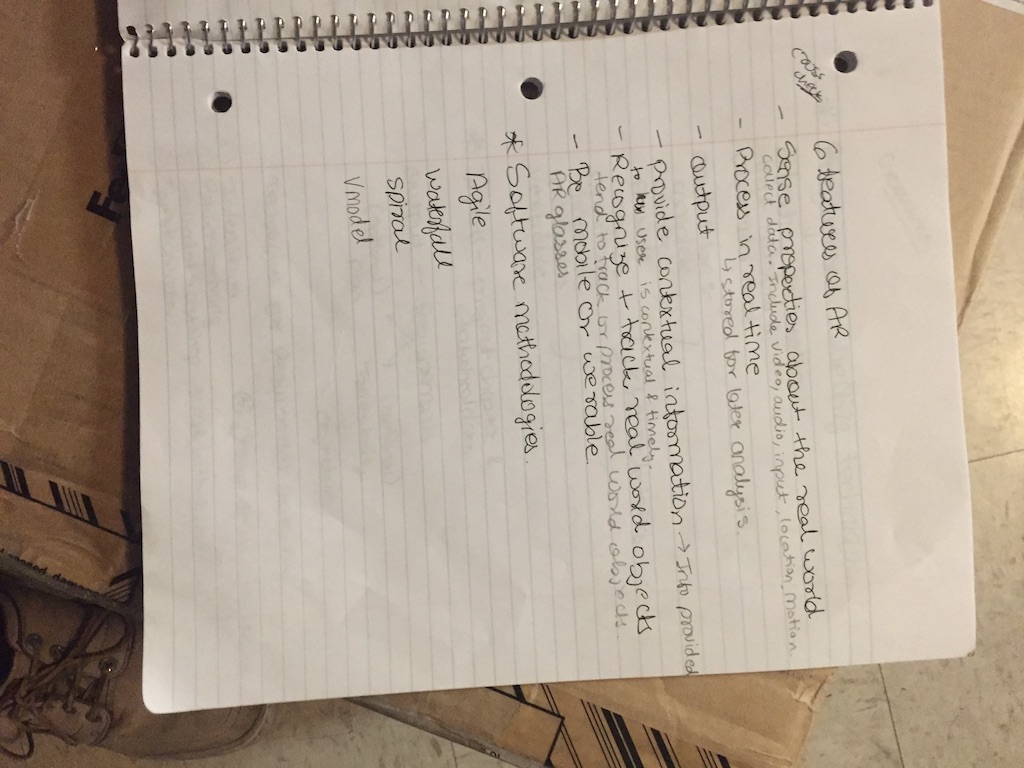 6 features of AR
- Sense properties about the real world
collect data include video, audio, input, location, motion
- Process in real time
↳ stored for later analysis.
- output
- Provide contextual information → Info provided
to user is contextual & timely.
- Recognize + track real word objects
tend to track or process real world objects
- Be mobile or werable.
AR glasses
* Software methodologies.
Agile
waterfall
spiral
Vmodel